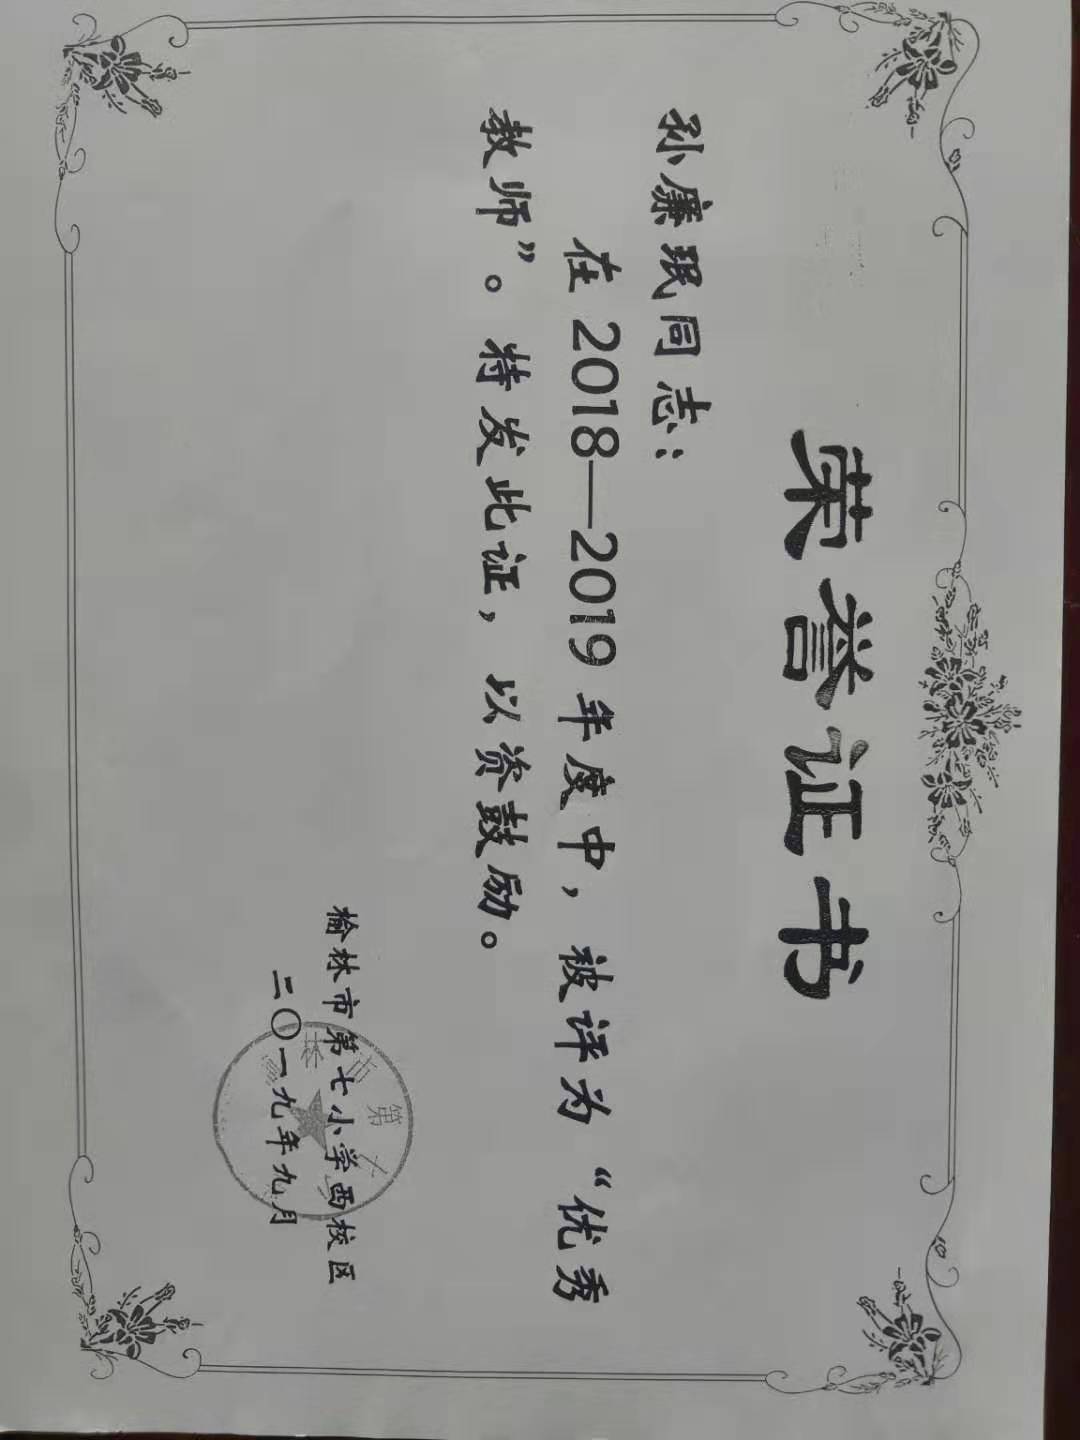 荣誉证书
孙廉珉同志：
在 2018—2019 年度中，被评为“优秀
教师”。特发此证，以资鼓励。
榆林市第七小学西校区
二〇一九年九月